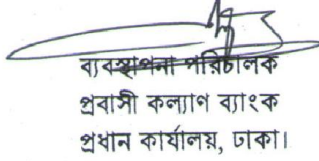 ব্যবস্থাপনা পরিচালক
প্রবাসী কল্যাণ ব্যাংক
প্রধান কার্যালয়, ঢাকা।